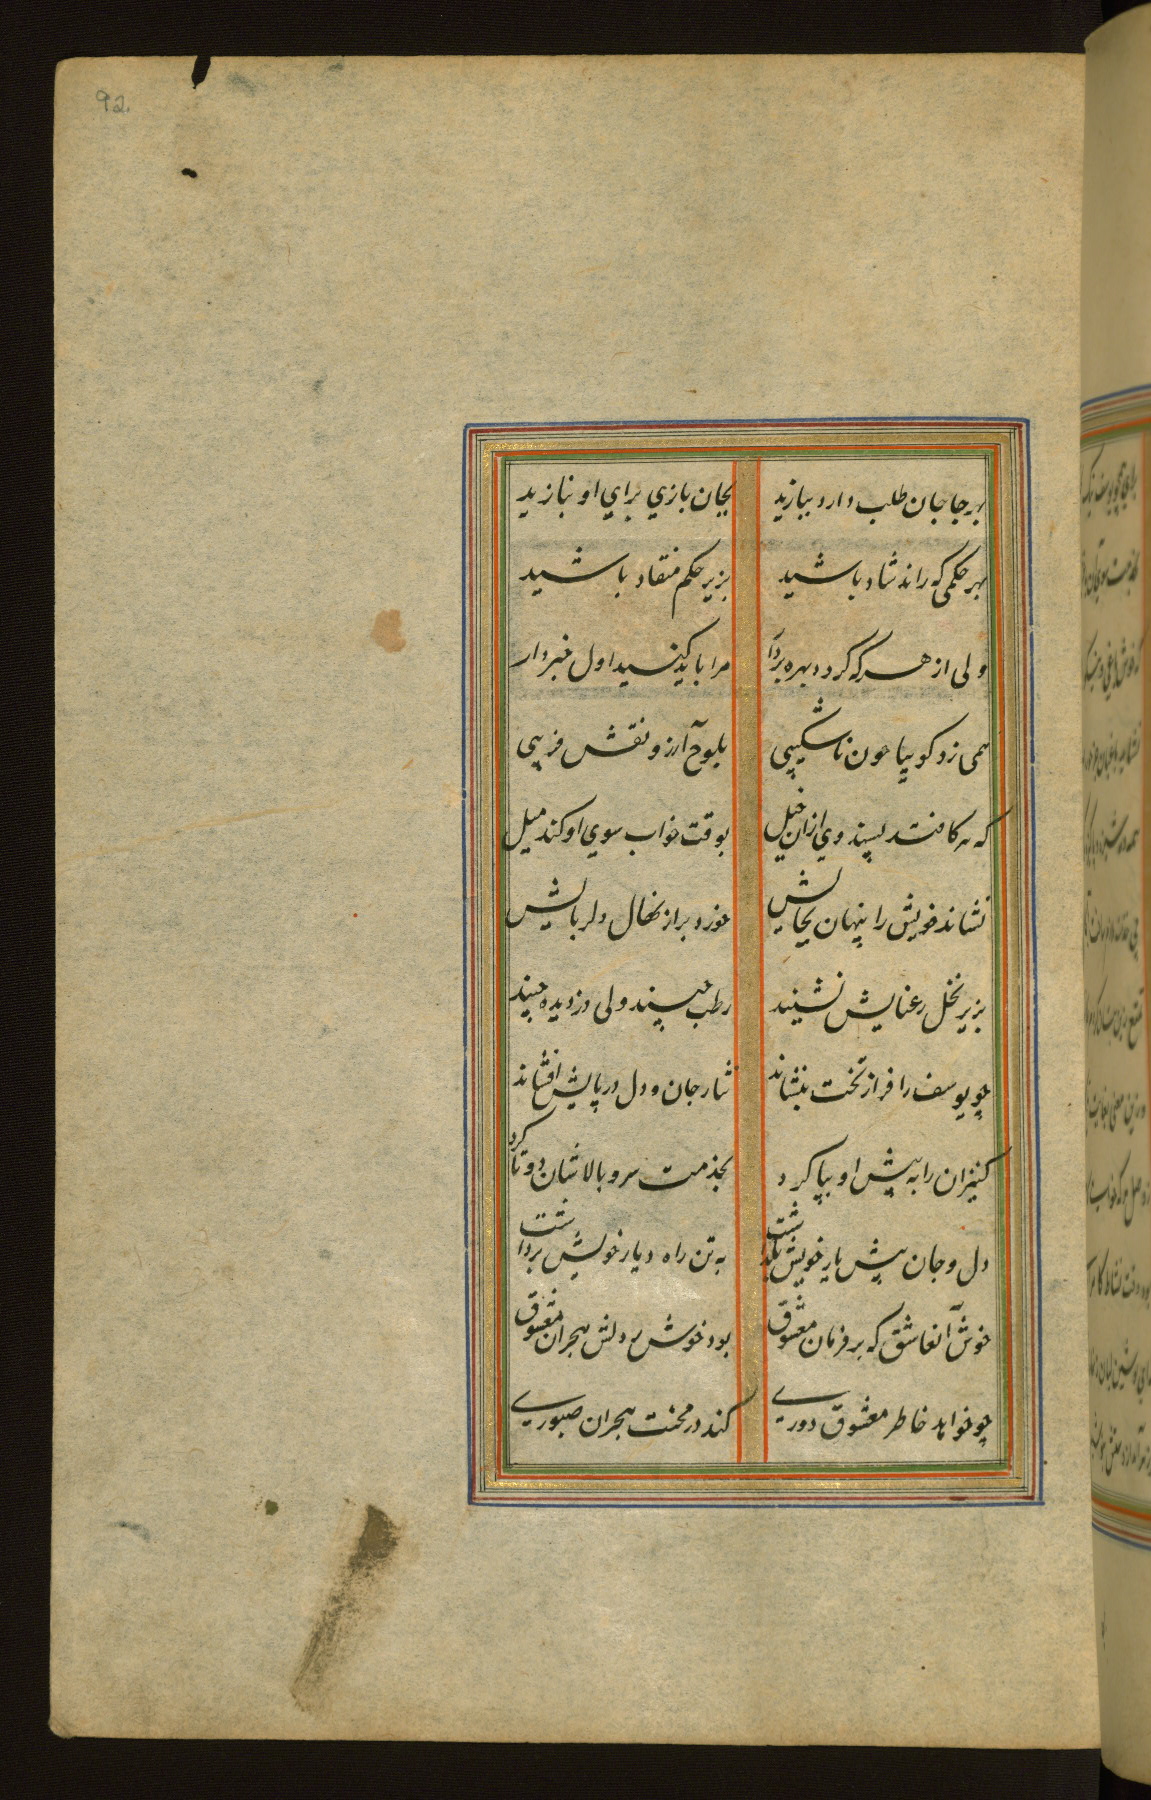 92
بهر جا جان طلب دارد ببازید بجان بازي براي او نبازید
بهر حکمی که راند شاد باشید بزیر حکم منقاد باشید
ولی از هر که گردد بهره بردار مرا باید کنید اول خبردار
همی زد گوییا چون ناشکیبی بلوح آرزو نقش فریبی
که هر کافتد پسند وي ازان خیل بوقت خواب سوي او کند میل
نشاند خویش را پنهان بجایش خورد بر از نهال دلربایش
بزیر نخل رعنایش نشیند رطب چیند ولی دزدیده چیند
چو یوسف را فراز تخت بنشاند نثار جان و دل در پایش افشاند
کنیزان را به پیش او بپا کرد بخدمت سرو بالاشان دو تا کرد
دل و جان پیش یار خویش بگذاشت به تن راه دیار خویش برداشت
خوش آنعاشق که بر فرمان معشوق بود خوش بر دلش هجران معشوق
چو خواهد خاطر معشوق دوري کند در محنت هجران صبوري